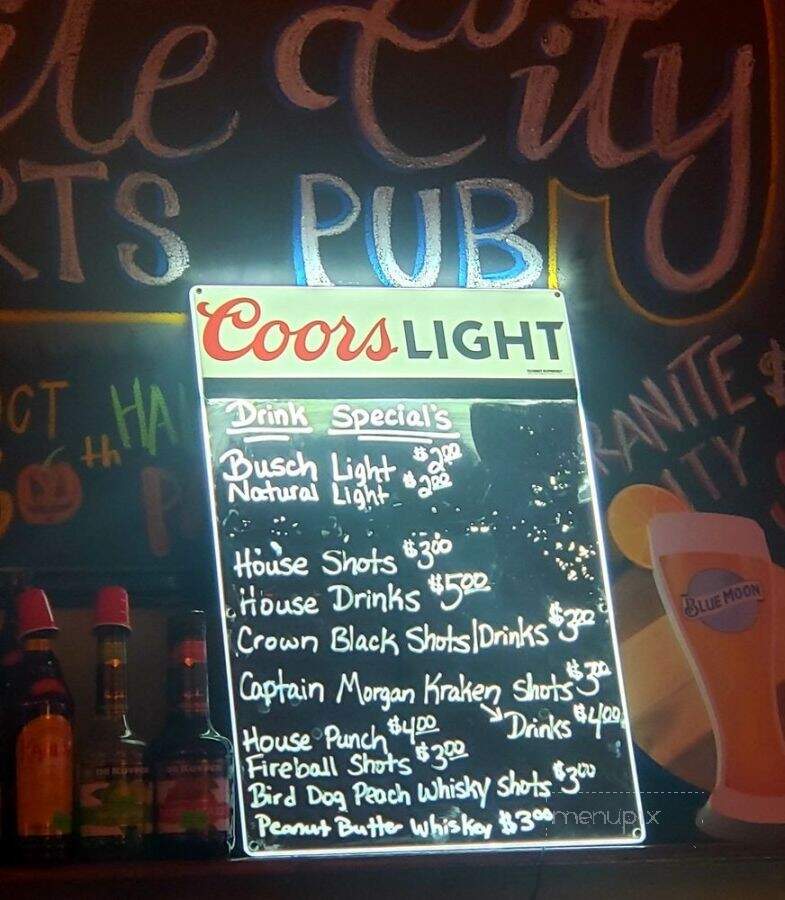 City
PUB
Coors LIGHT
Drink Special's
Busch Light $2.00
Natural Light $2.00
House Shots $3.00
House Drinks $5.00
Crown Black Shots/Drinks $3.00
Captain Morgan Kraken Shots $3.00
Drinks $4.00
House Punch $4.00
Fireball Shots $3.00
Bird Dog Peach Whisky Shots $3.00
Peanut Butter Whiskey $3.00
BLUE MOON
menupix